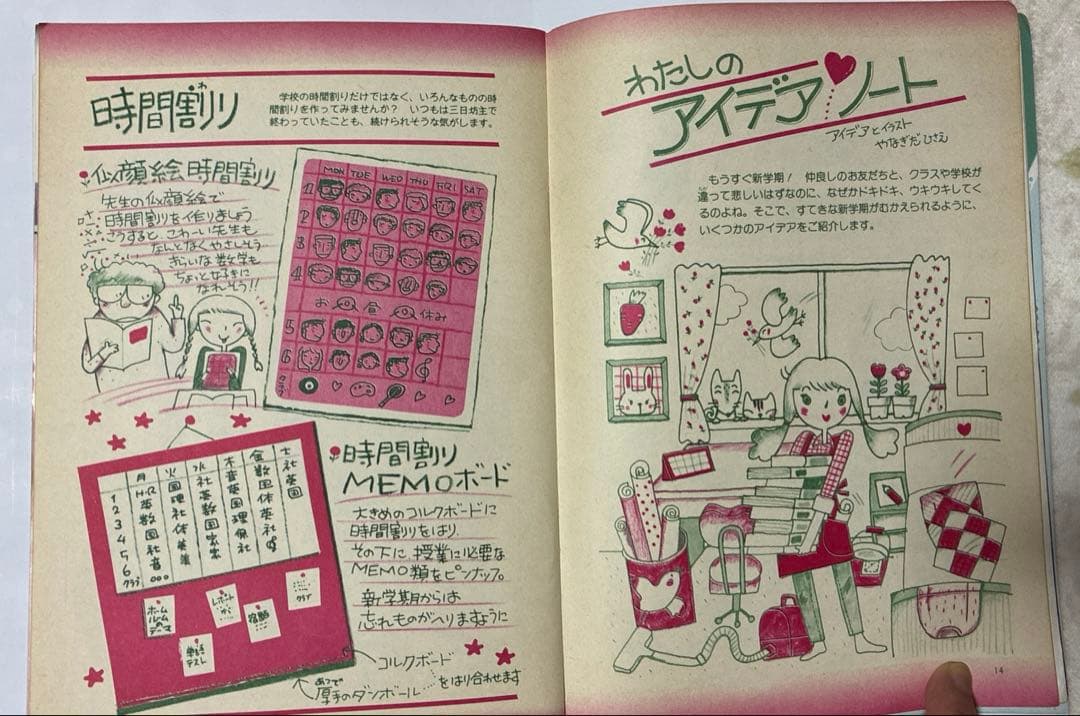 わたしの
アイデアノート
アイデアとイラスト
やなぎだひさえ
もうすぐ新学期！ 仲良しのお友だちと、クラスや学校が
違って悲しいはずなのに、なぜかドキドキ、ウキウキしてく
るのよね。そこで、すてきな新学期がむかえられるように、
いくつかのアイデアをご紹介します。
14
時間割り
わ
学校の時間割りだけではなく、いろんなものの時
間割りを作ってみませんか？ いつもは三日坊主で
終わっていたことも、続けられそうな気がします。
似顔絵時間割り
先生の似顔絵で
時間割りを作りましょう
そうすると、こわ〜い先生も
なんとなくやさしそう
きらいな数学も
ちょっと好きに
なれそう!!
MON TUE WED THU FRI SAT
1
2
3
4
お昼休み
5
6
時間割り
MEMOボード
大きめのコルクボードに
時間割りをはり、
その下に、授業に必要な
MEMO類をピンナップ。
新学期からは
忘れものがへりますように
月 火 水 木 金 土
1 H・R 国 社 音 数 社
2 英 理 英 英 国 英
3 数 社 数 国 体 国
4 国 体 国 理 英
5 社 美 家 保 社
6 音 美 家 社
クラブ
ホーム
ルームの
テーマ
レポート
宿題
クラブ
単語
テスト
コルクボード
あつで
厚手のダンボール
をはり合わせます